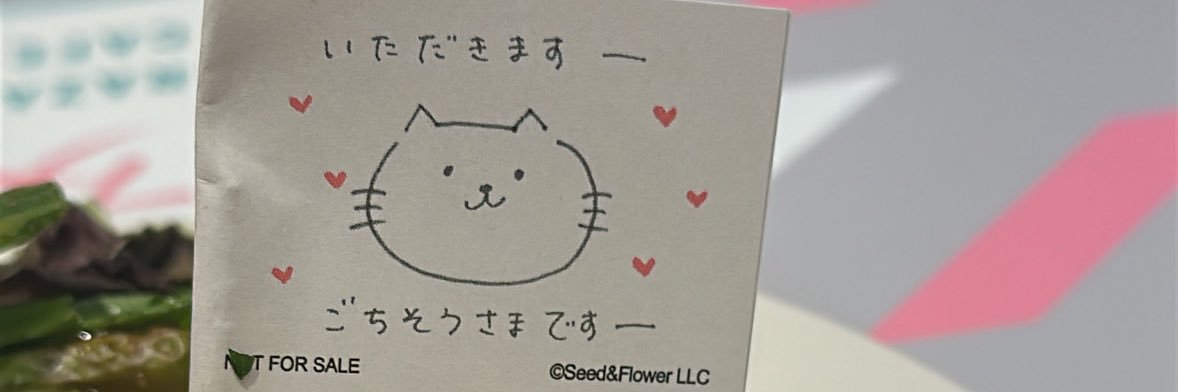 いただきますー
ごちそうさまですー
NOT FOR SALE
©Seed&Flower LLC